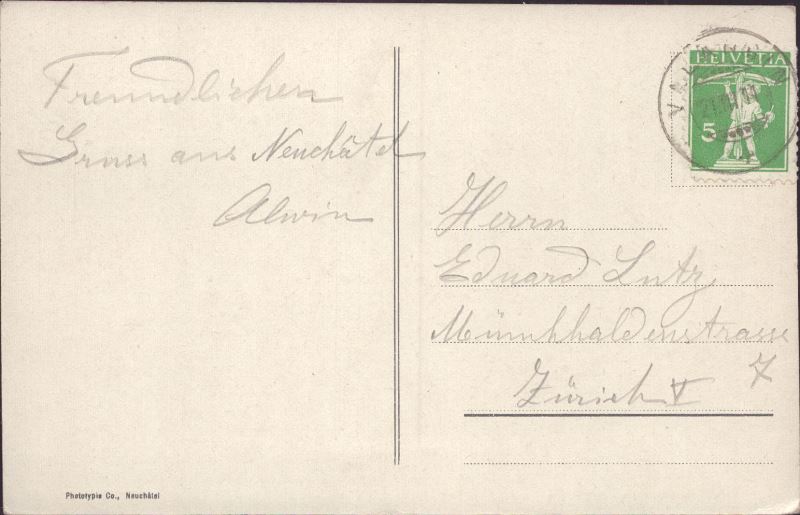 Freundlichen
Gruss aus Neuchâtel
Alwin
HELVETIA
5
Herrn
Eduard Lutz
Münchhaldenstrasse
7
Zürich V
Phototypie Co., Neuchâtel